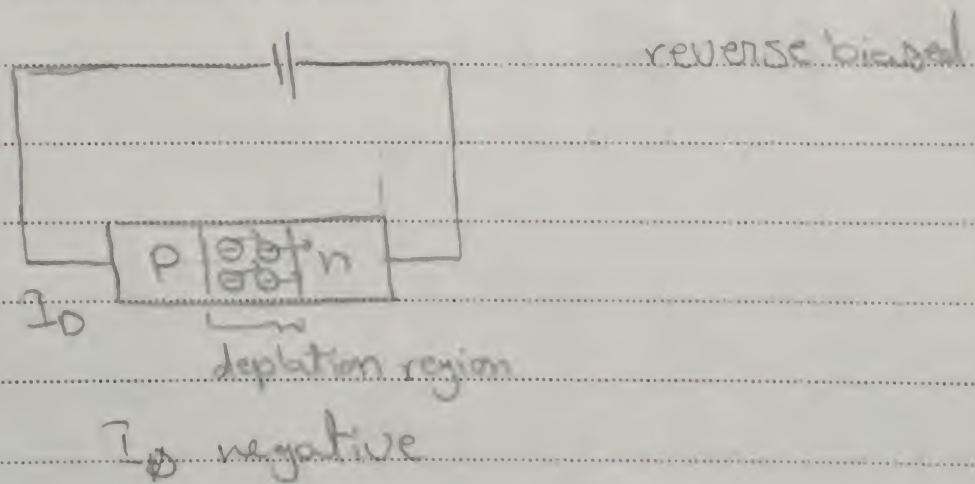 reverse biased
P n
I_D
deplation region
I_D negative